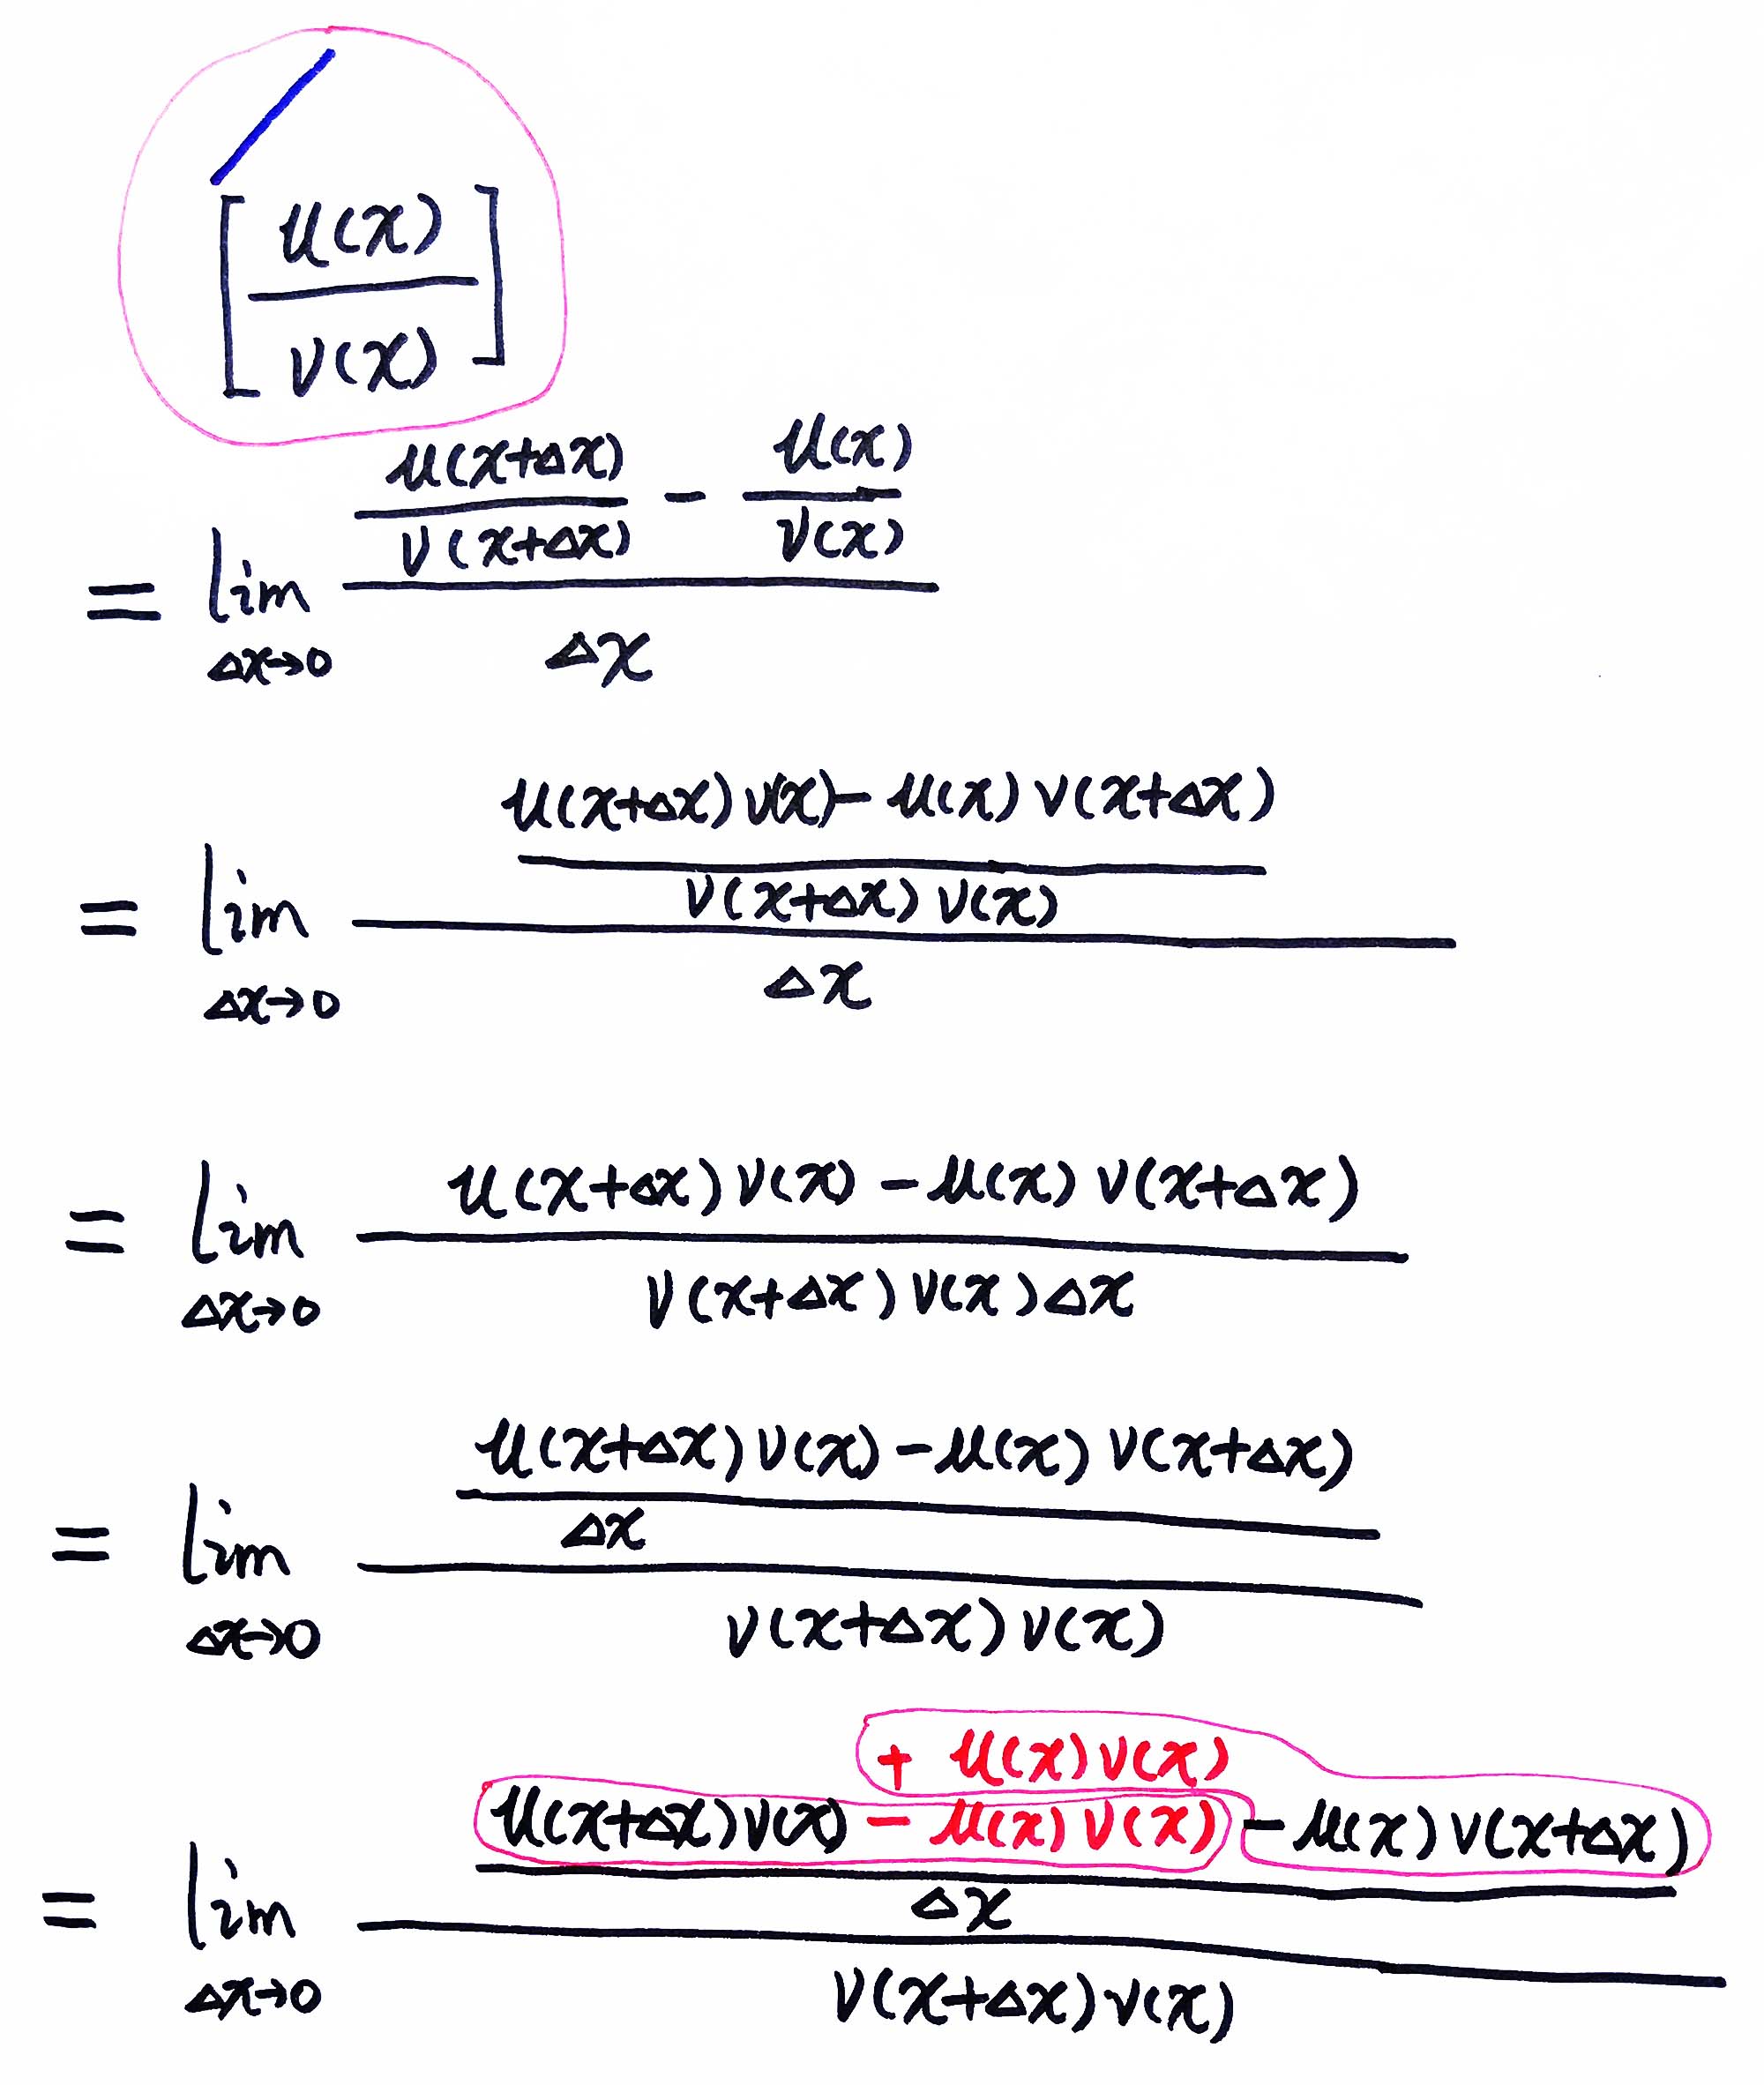 [u(x)/v(x)]′
= lim Δx→0 (u(x+Δx)/v(x+Δx) - u(x)/v(x))/Δx
= lim Δx→0 ((u(x+Δx)v(x) - u(x)v(x+Δx))/(v(x+Δx)v(x)))/Δx
= lim Δx→0 (u(x+Δx)v(x) - u(x)v(x+Δx))/(v(x+Δx)v(x)Δx)
= lim Δx→0 ((u(x+Δx)v(x) - u(x)v(x+Δx))/Δx)/(v(x+Δx)v(x))
+ u(x)v(x)
= lim Δx→0 ((u(x+Δx)v(x) - u(x)v(x) - u(x)v(x+Δx))/Δx)/(v(x+Δx)v(x))